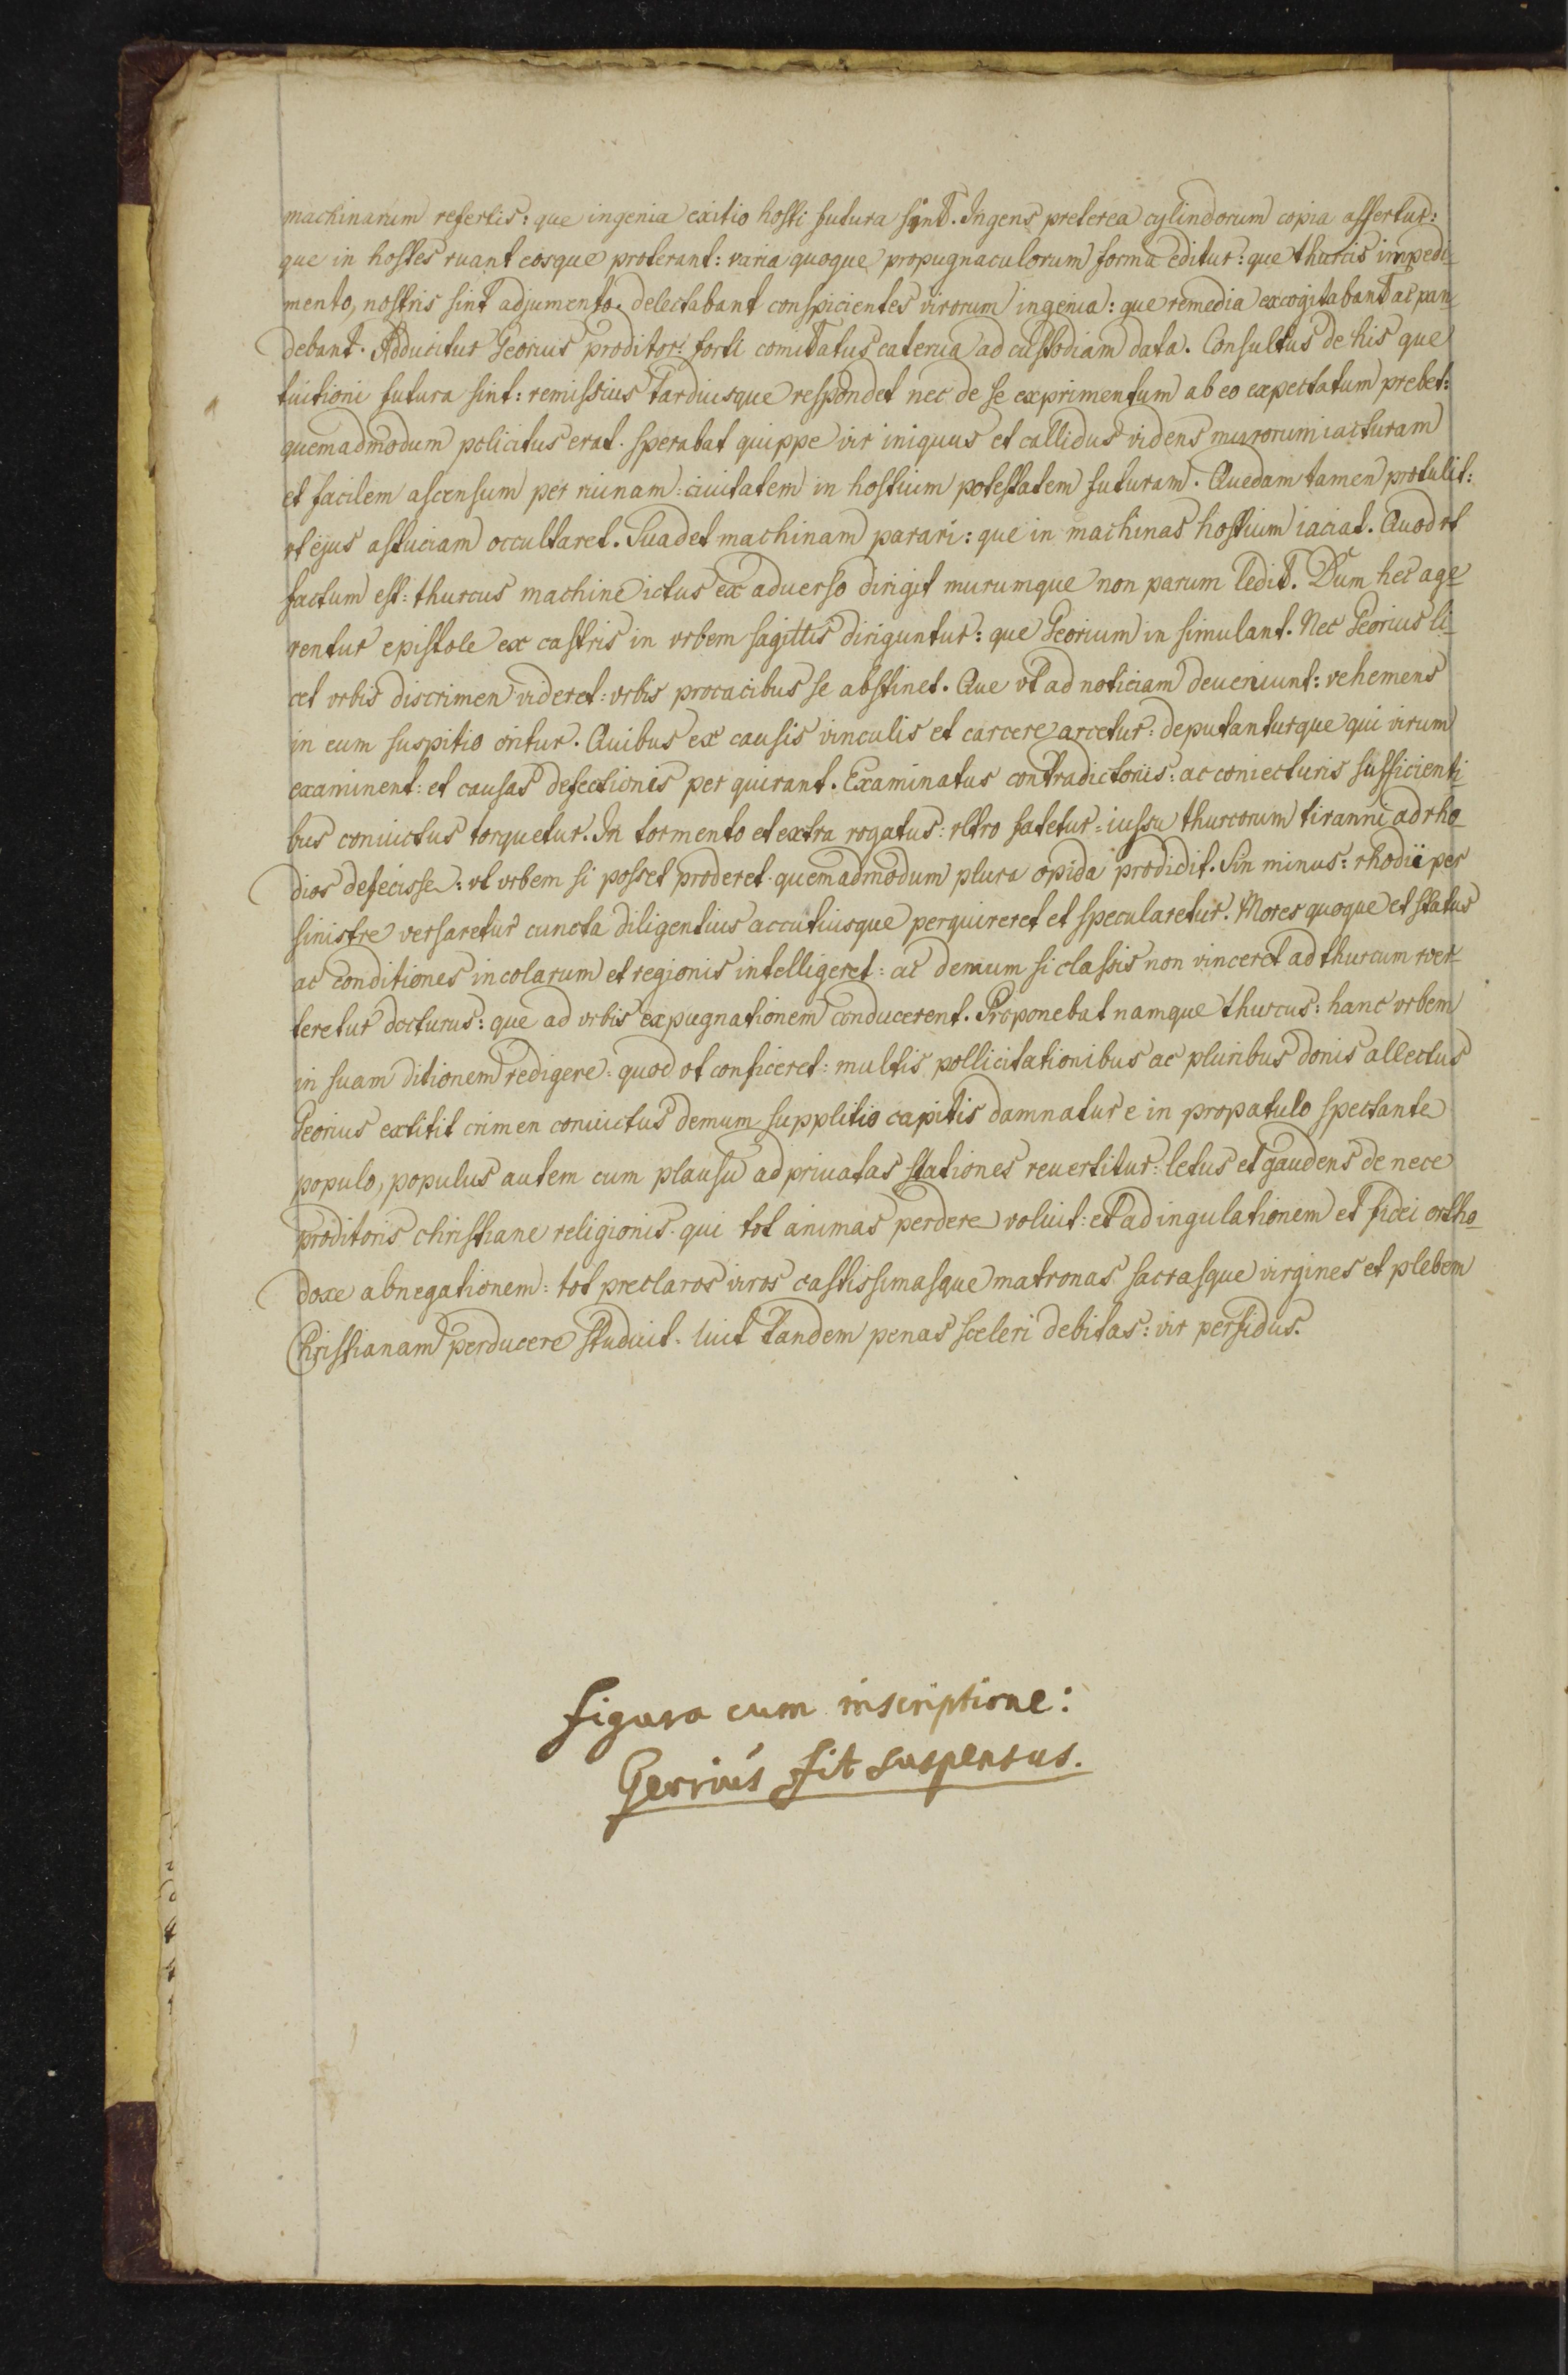 machinarum refertis: que ingenia exitio hosti futura sint. Ingens preterea cylindorum copia affertur:
que in hostes ruant eosque proterant: varia quoque propugnaculorum forma editur: que thurcis impedi-
mento, nostris sint adjumento. delectabant conspicientes virorum ingenia: que remedia excogitabant ac pan-
debant. Adducitur Georius proditor: forti comitatus caterua ad custodiam data. Consultus de his que
tuitioni futura sint: remissius tardiusque respondet nec de se exprimentum ab eo expectatum prebet:
quemadmodum policitus erat. sperabat quippe vir iniquus et callidus videns murorum iacturam
et facilem ascensum per ruinam: ciuitatem in hostium potestatem futuram. Quedam tamen protulit:
vt ejus astuciam occultaret. Suadet machinam parari: que in machinas hostium iaciat. Quod vt
factum est: thurcus machine ictus ex aduerso dirigit murumque non parum ledit. Dum hec age-
rentur epistole ex castris in vrbem sagittis diriguntur: que Georium in simulant. Nec Georius li-
cet vrbis discrimen videret: vrbis procacibus se abstinet. Que vt ad noticiam deueniunt: vehemens
in eum suspitio oritur. Quibus ex causis vinculis et carcere arcetur: deputanturque qui virum
examinent: et causas defectionis per quirant. Examinatus contradictoris: ac coniecturis sufficienti-
bus conuictus torquetur. In tormento et extra rogatus: vltro fatetur: iussu thurcorum tiranni ad rho-
dios defecisse: vt vrbem si posset proderet. quemadmodum plura opida prodidit. Sin minus: rhodii per
sinistre versaretur cuncta diligentius accutiusque perquireret et specularetur. Mores quoque et status
ac conditiones incolarum et regionis intelligeret: ac demum si classis non vinceret ad thurcum rver-
teretur docturus: que ad vrbis expugnationem conducerent. Proponebat namque thurcus: hanc vrbem
in suam ditionem redigere: quod vt conficeret: multis pollicitationibus ac pluribus donis allectus
Georius extitit crimen conuictus demum supplitio capitis damnatur e in propatulo spectante
populo, populus autem cum plausu ad priuatas stationes reuertitur: letus et gaudens de nece
proditoris christiane religionis. qui tot animas perdere voluit: et ad ingulationem et fidei ortho-
doxe abnegationem: tot preclaros viros castissimasque matronas sacrasque virgines et plebem
Christianam perducere studuit. luit tandem penas sceleri debitas: vir perfidus.
figura cum inscriptione:
Gerrius fit suspensus.